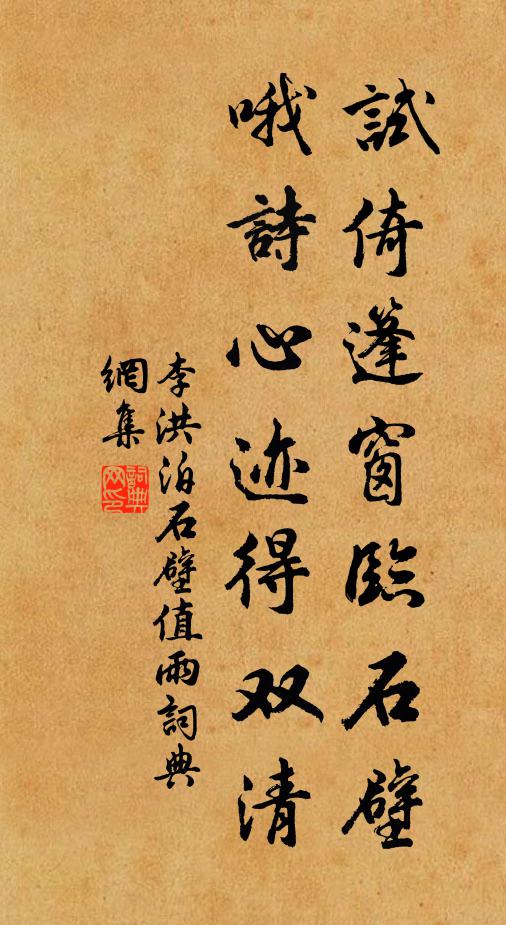 試倚蓬窗臨石壁
哦詩心迹得双清
李洪泊石壁值雨詞典
網集
詞典
网印